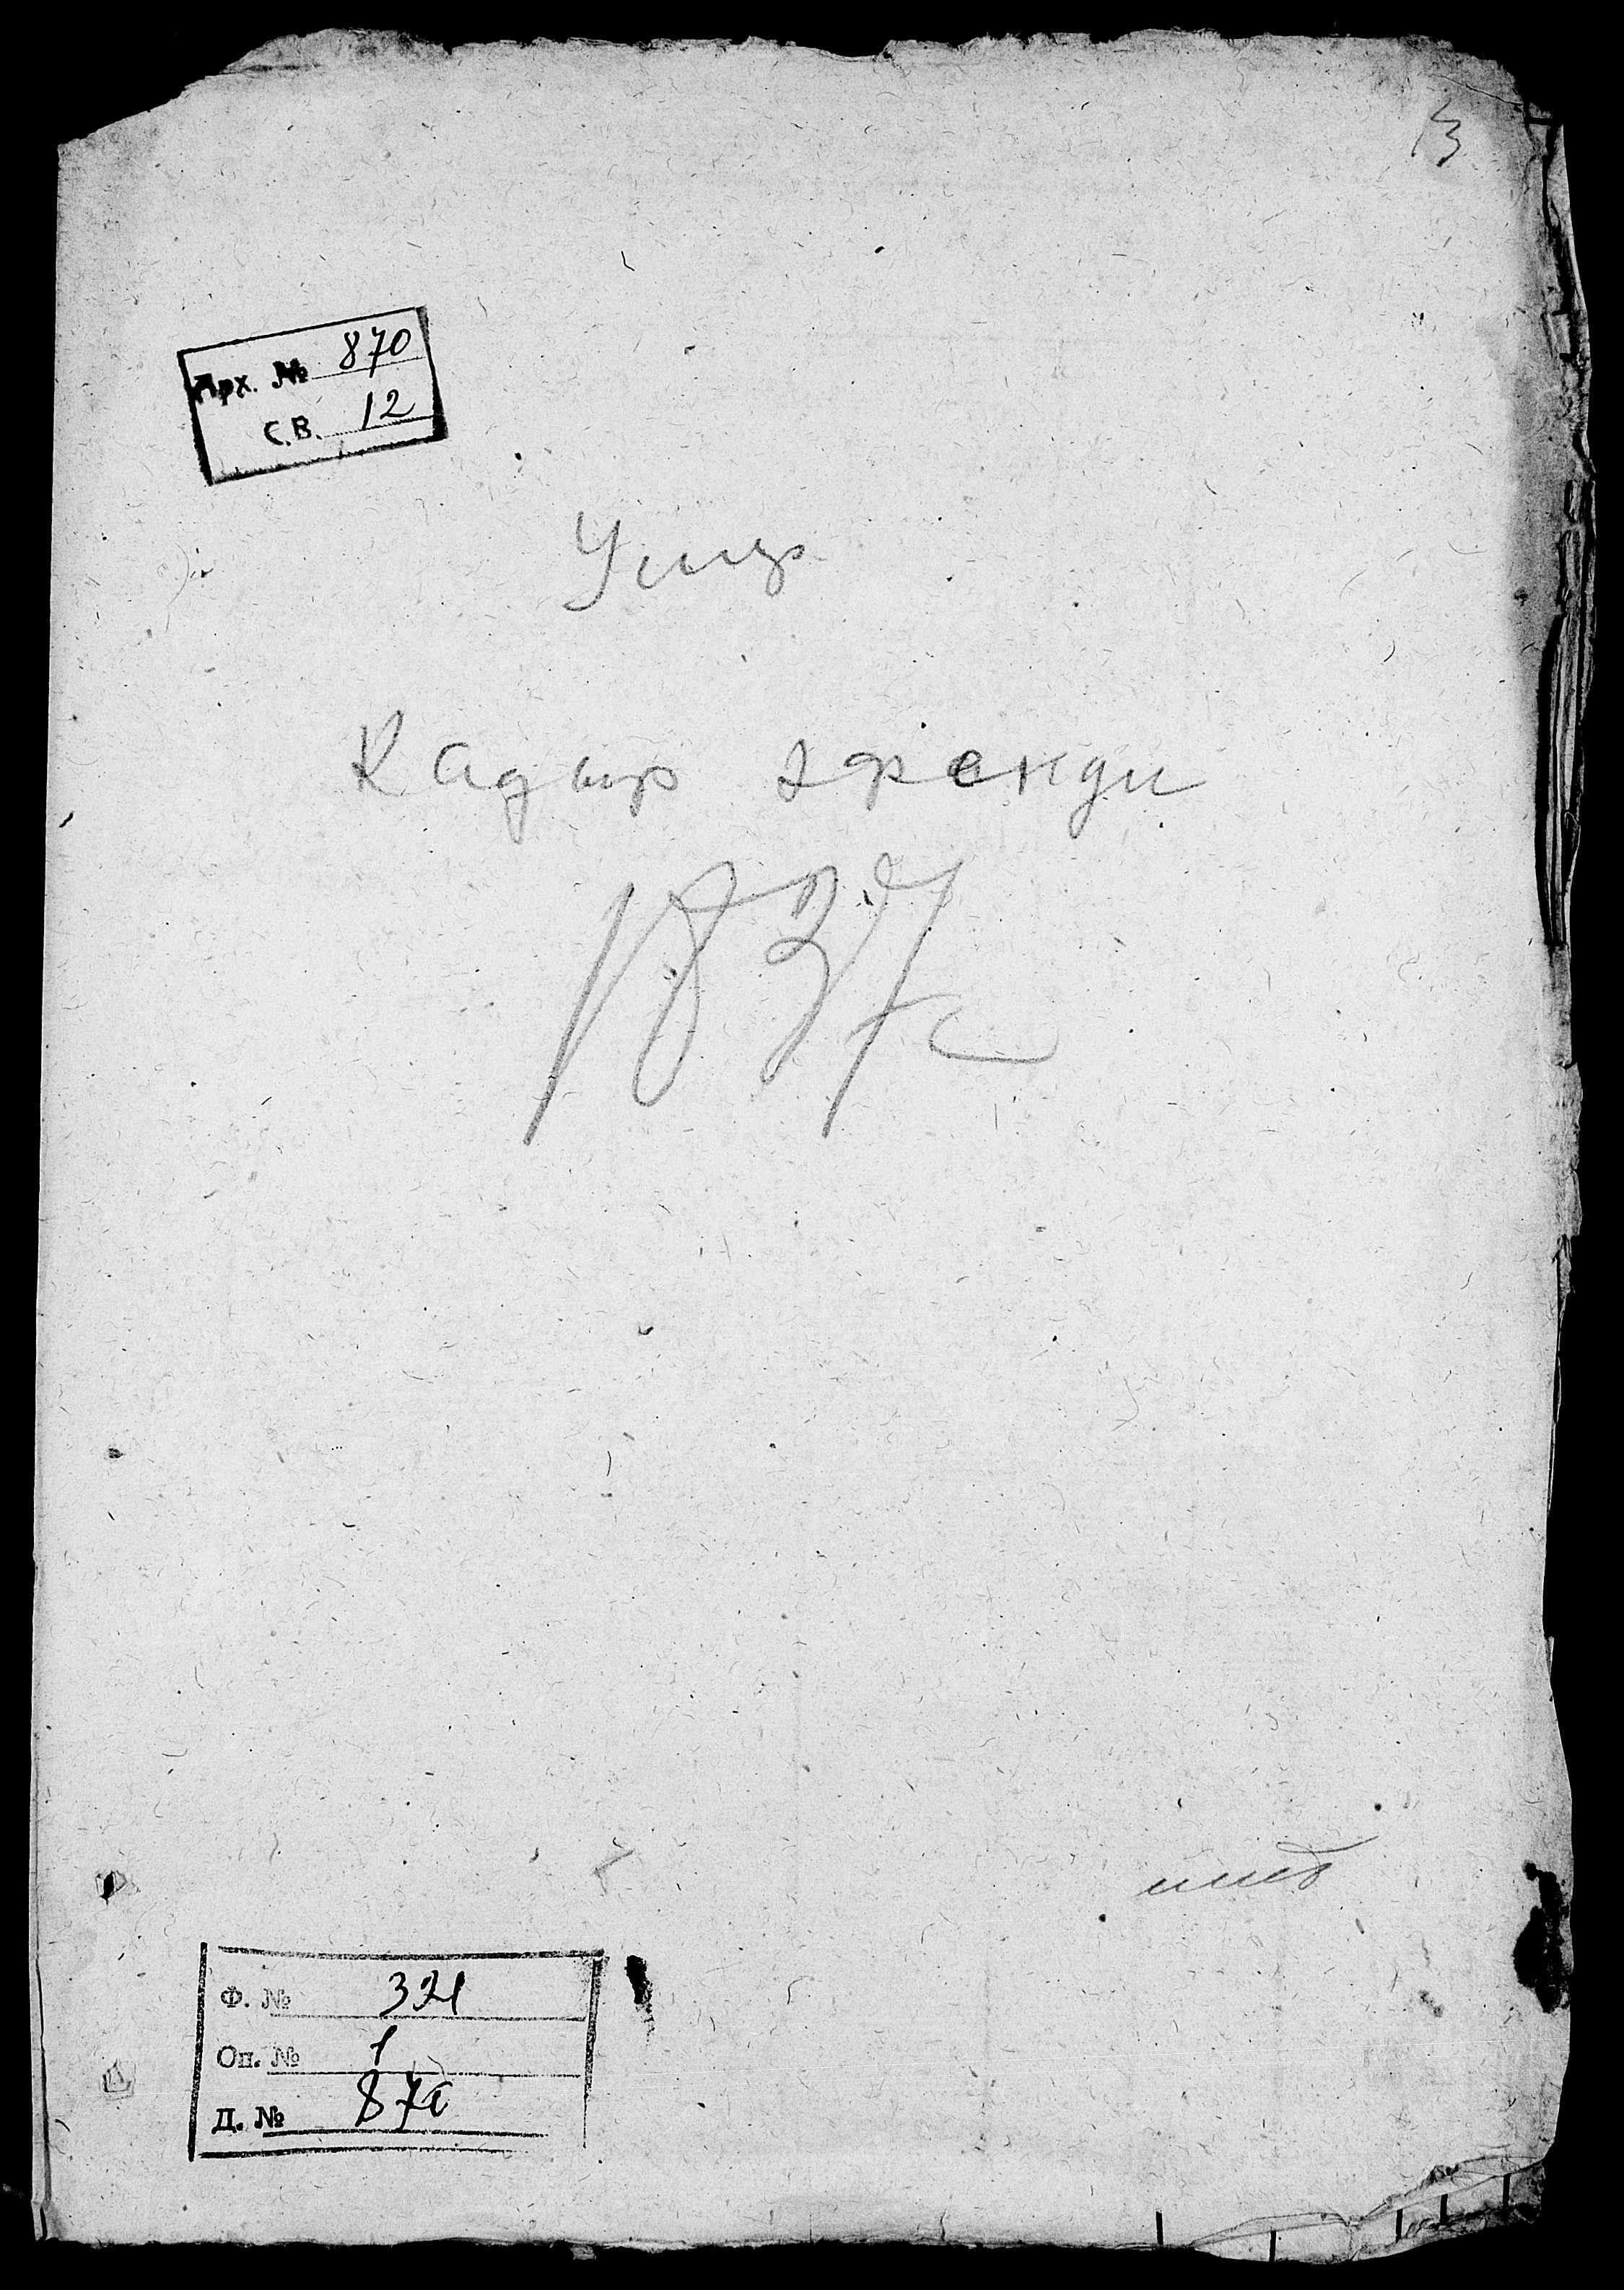 13
Арх. № 870
С.В. 12
Умер
Кадыр эфенди
1837 г
Ф. № 321
Оп. № 1
Д. № 870